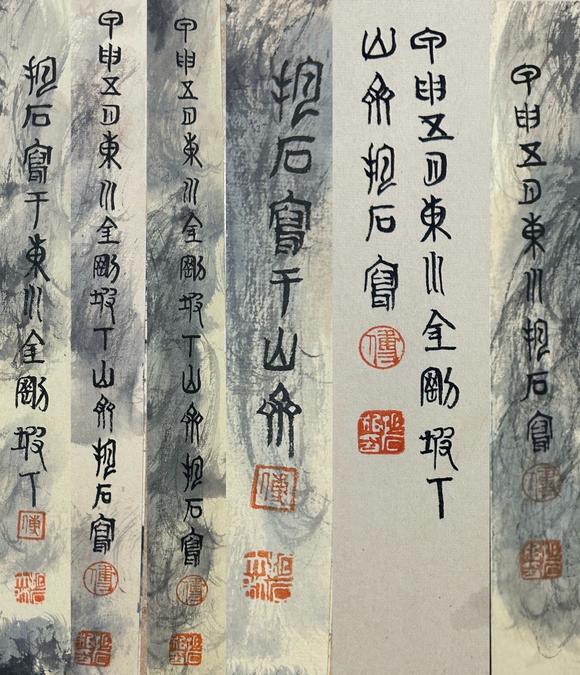 甲申五月東川抱石寫
傅
甲申五月東川金剛坡下
山齋抱石寫
傅
抱石寫于山齋
傅
甲申五月東川金剛坡下山齋抱石寫
傅
甲申五月東川金剛坡下山齋抱石寫
傅
抱石寫于東川金剛坡下
傅